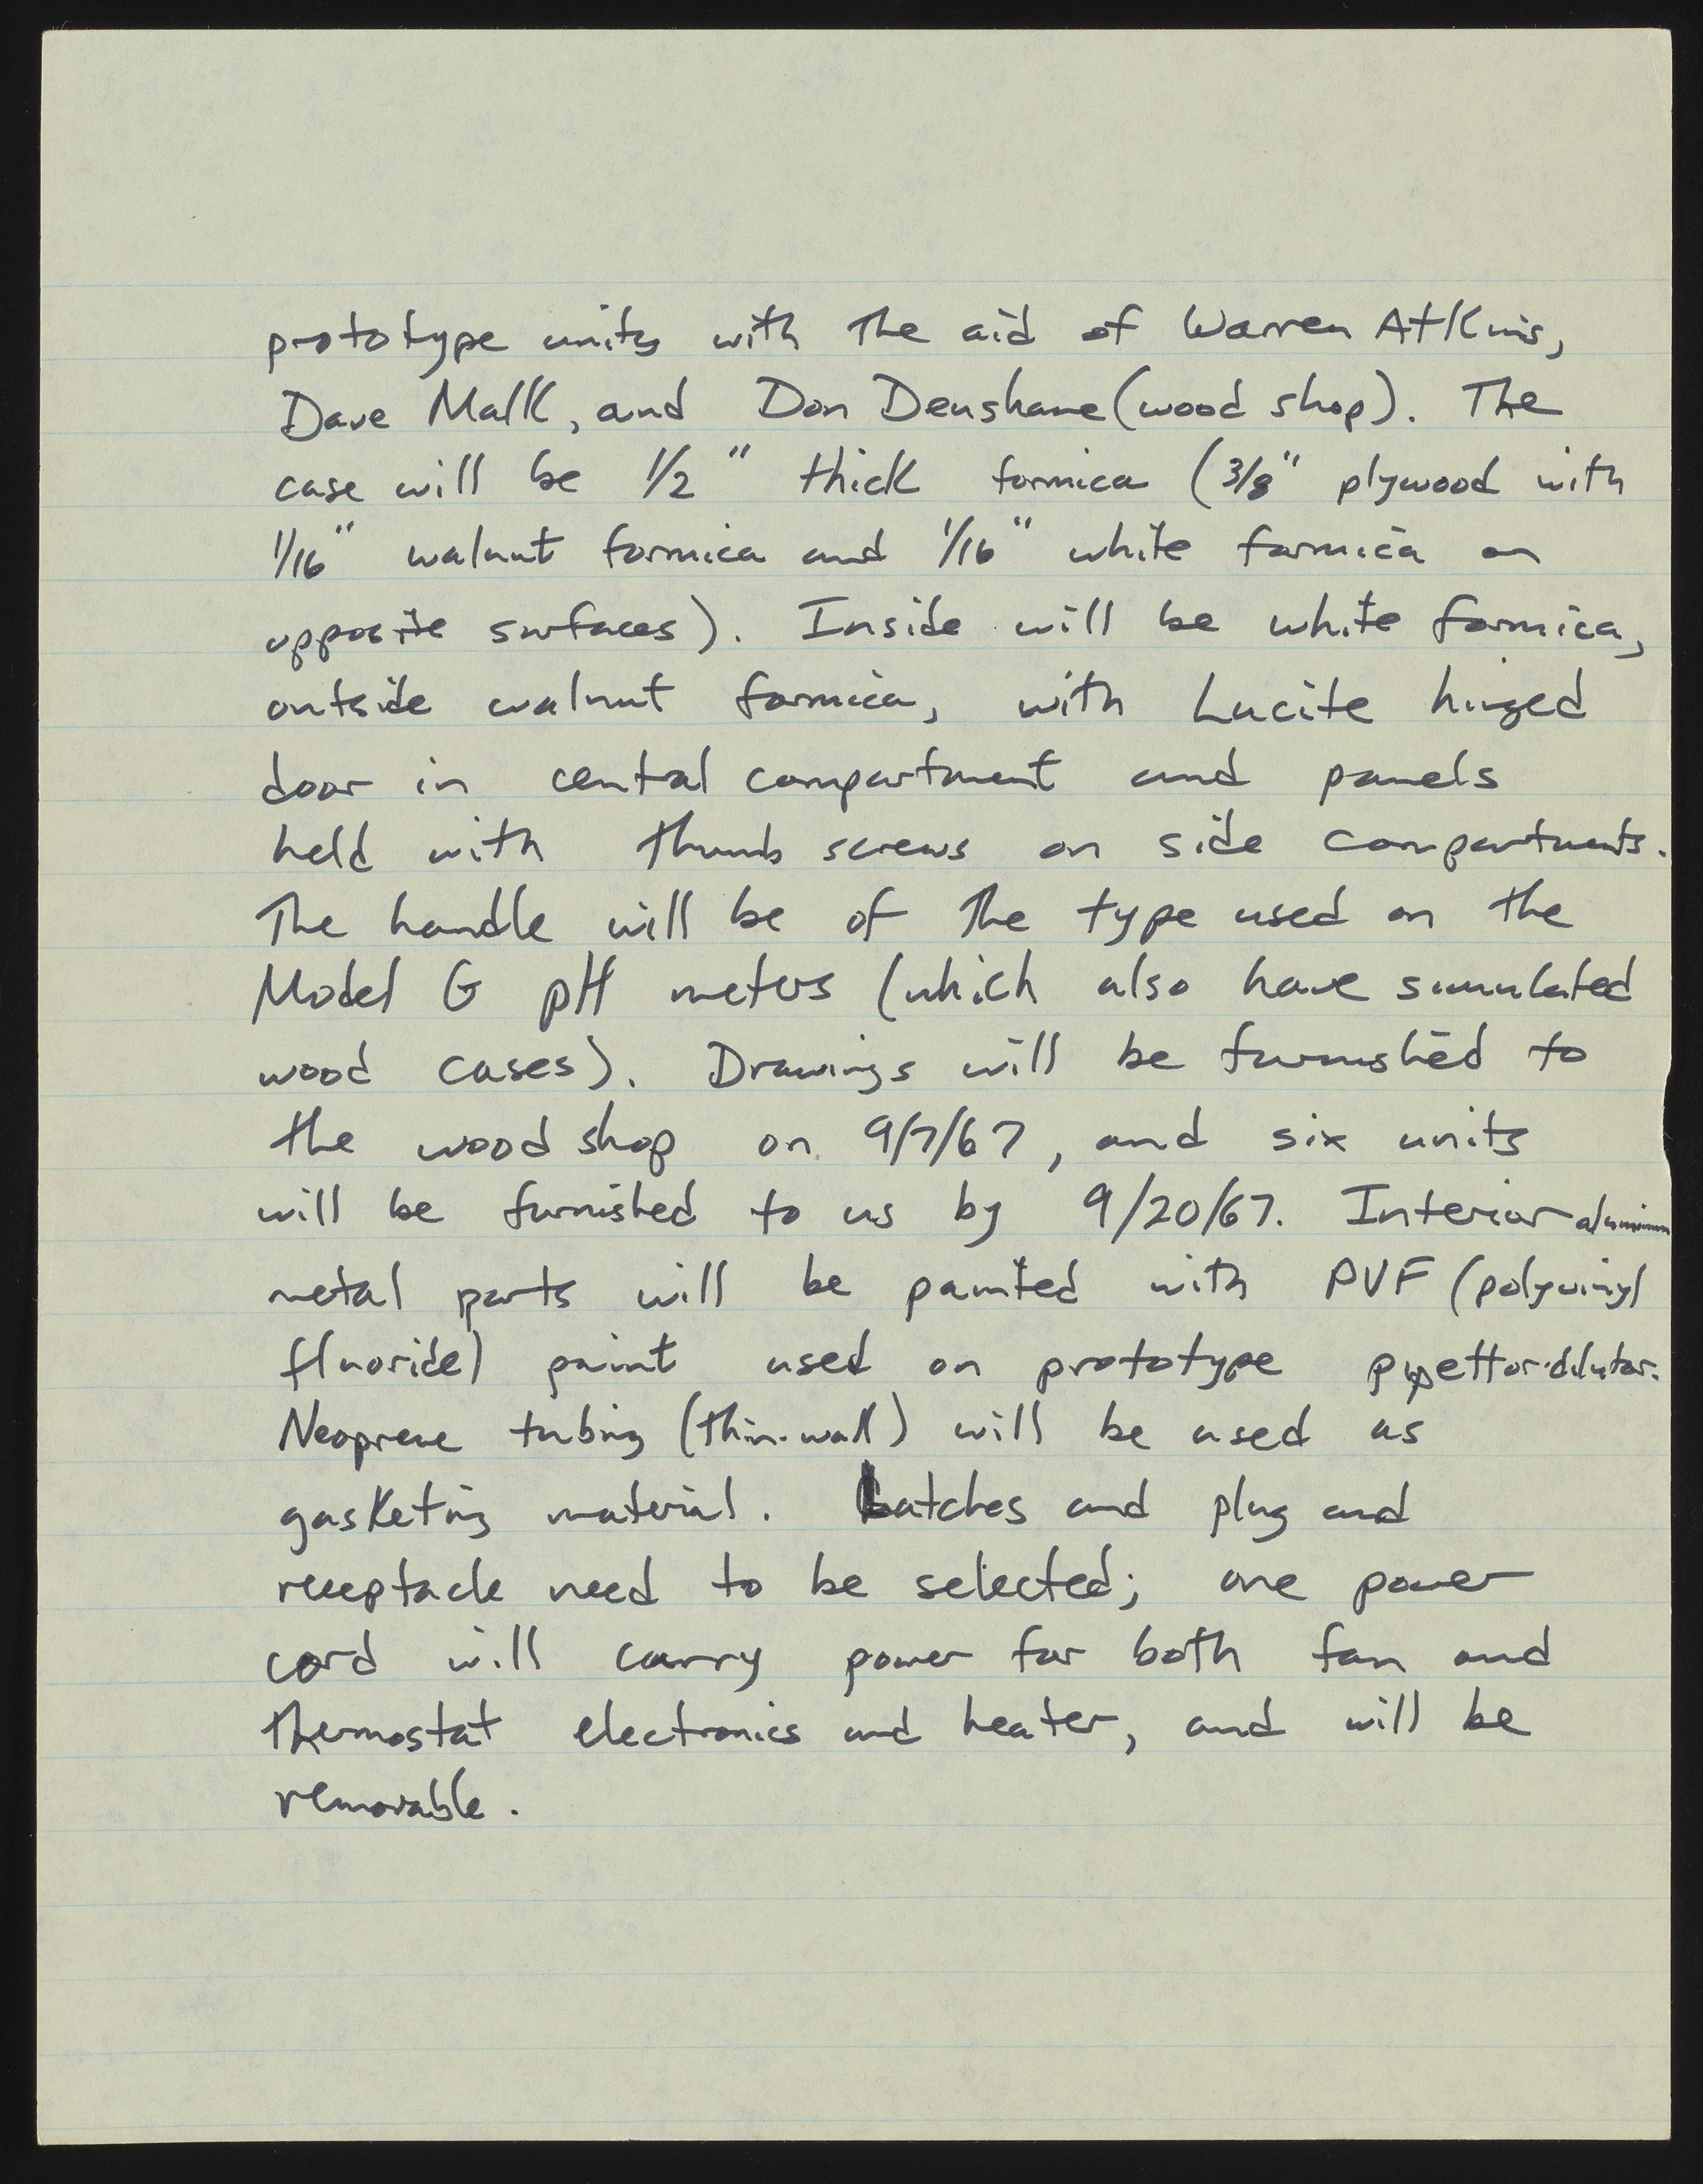 prototype units with the aid of Warren Atkins,
Dave Malk, and Don Denshane (wood shop). The
case will be 1/2" thick formica (3/8" plywood with
1/16" walnut formica and 1/16" white formica on
opposite surfaces). Inside will be white formica,
outside walnut formica, with Lucite hinged
door in central compartment and panels
held with thumb screws on side compartments.
The handle will be of the type used on the
Model G pH meters (which also have simulated
wood cases). Drawings will be furnished to
the wood shop on 9/7/67, and six units
will be furnished to us by 9/20/67. Interior aluminum
metal parts will be painted with PVF (polyvinyl
fluoride) paint used on prototype pipettor-dilutor.
Neoprene tubing (thin-wall) will be used as
gasketing material. Latches and plug and
receptacle need to be selected; one power
cord will carry power for both fan and
thermostat electronics and heater, and will be
removable.